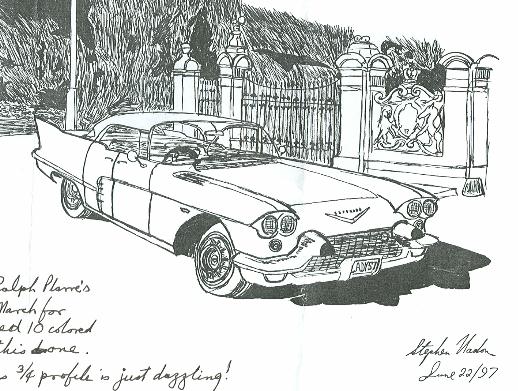 Ralph
March for
ed 10 colored
this one.
s 3/4 profile is just dazzling!
Stephen
June 22/97